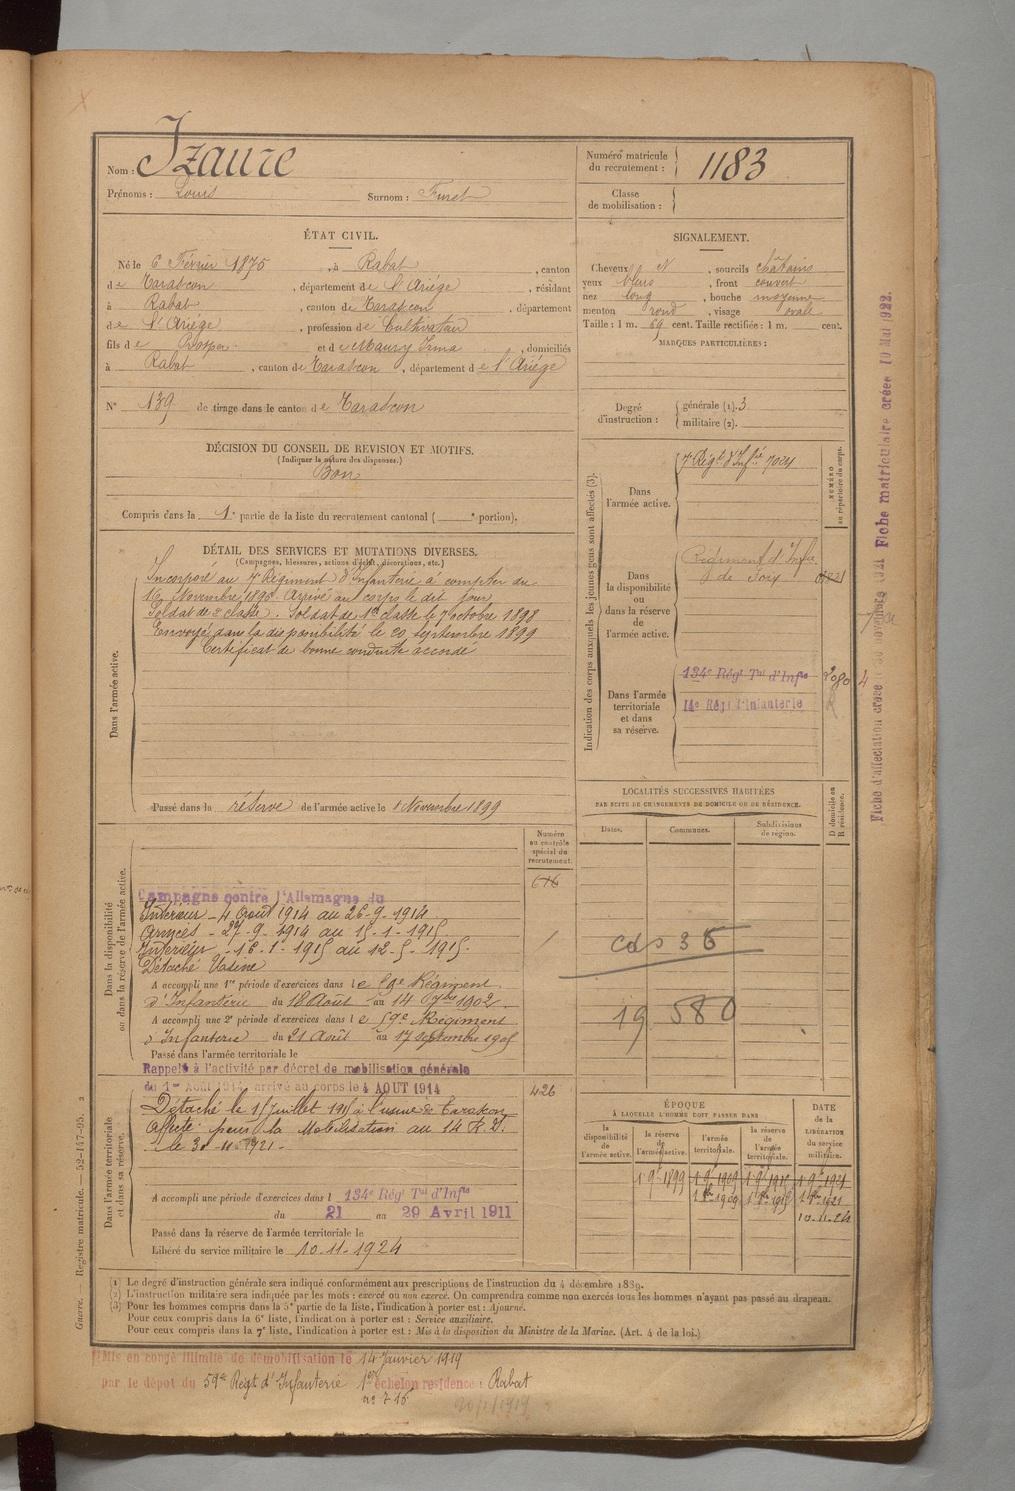 Nom : Izaure
Prénoms : Louis Surnom : Furet
Numéro matricule du recrutement : 1183
Classe de mobilisation :
ÉTAT CIVIL.
Né le 6 Février 1875, à Rabat, canton
de Tarascon, département de l'Ariège, résidant
à Rabat, canton de Tarascon, département
de l'Ariège, profession de Cultivateur
fils de Prosper et de Maury Irma, domiciliés
à Rabat, canton de Tarascon, département de l'Ariège
N° 139 de tirage dans le canton de Tarascon
SIGNALEMENT.
Cheveux N, sourcils châtains
yeux bleus, front couvert
nez long, bouche moyenne
menton rond, visage ovale
Taille : 1 m. 69 cent. Taille rectifiée : 1 m. cent.
MARQUES PARTICULIÈRES :
Degré d'instruction : générale (1). 3
militaire (2).
DÉCISION DU CONSEIL DE REVISION ET MOTIFS.
(Indiquer la nature des dispenses.)
Bon
Compris dans la 1e partie de la liste du recrutement cantonal ( e portion).
DÉTAIL DES SERVICES ET MUTATIONS DIVERSES.
(Campagnes, blessures, actions d'éclat, décorations, etc.)
Dans l'armée active.
Incorporé au 7e Régiment d'Infanterie à compter du
16 Novembre 1896. Arrivé au corps le dit jour
Soldat de 2e classe. Soldat de 1re classe le 7 octobre 1898
Envoyé dans la disponibilité le 20 septembre 1899
Certificat de bonne conduite accordé
Passé dans la réserve de l'armée active le 1 Novembre 1899
Indication des corps auxquels les jeunes gens sont affectés (3).
NUMÉRO au répertoire du corps.
Dans l'armée active.
7e Régt d'Infie
Dans la disponibilité ou dans la réserve de l'armée active.
Régiment d'Infie
de Foix
Dans l'armée territoriale et dans sa réserve.
134e Régt Tal d'Infie 2080
14e Régt d'Infanterie
LOCALITÉS SUCCESSIVES HABITÉES
PAR SUITE DE CHANGEMENTS DE DOMICILE OU DE RÉSIDENCE.
Dates. Communes. Subdivisions de région. D domicile ou R résidence.
19 580
Numéro au contrôle spécial du recrutement.
616
Dans la disponibilité ou dans la réserve de l'armée active.
Campagne contre l'Allemagne du
Intérieur - 4 Août 1914 au 26-9-1914
Armées - 27-9-1914 au 15-1-1915
Intérieur - 16-1-1915 au 12-5-1915.
Détaché
A accompli une 1re période d'exercices dans le 59e Régiment
d'Infanterie du 18 Août au 14 7bre 1902.
A accompli une 2e période d'exercices dans le 59e Régiment
d'Infanterie du 21 Août au 17 septembre 1905
Passé dans l'armée territoriale le
Rappelé à l'activité par décret de mobilisation générale
du 1er Août 1914, arrivé au corps le 4 AOUT 1914
426
Dans l'armée territoriale et dans sa réserve.
Détaché le 15 juillet 1915 à l'usine de Tarascon
Affecté pour la Mobilisation au 14 R.I.
le 30-11-1921 -
A accompli une période d'exercices dans l 134e Régt Tal d'Infie
du 21 au 29 Avril 1911
Passé dans la réserve de l'armée territoriale le
Libéré du service militaire le 10-11-1924
ÉPOQUE
À LAQUELLE L'HOMME DOIT PASSER DANS
DATE de la LIBÉRATION du service militaire.
la disponibilité de l'armée active. la réserve de l'armée active. l'armée territoriale. la réserve de l'armée territoriale.
1 9bre 1899 1 9bre 1909 1 9bre 1915 1 9bre 1921
10-11-24
(1) Le degré d'instruction générale sera indiqué conformément aux prescriptions de l'instruction du 4 décembre 1889.
(2) L'instruction militaire sera indiquée par les mots : exercé ou non exercé. On comprendra comme non exercés tous les hommes n'ayant pas passé au drapeau.
(3) Pour les hommes compris dans la 5e partie de la liste, l'indication à porter est : Ajourné.
Pour ceux compris dans la 6e liste, l'indication à porter est : Service auxiliaire.
Pour ceux compris dans la 7e liste, l'indication à porter est : Mis à la disposition du Ministre de la Marine. (Art. 4 de la loi.)
Mis en congé illimité de démobilisation le 14 Janvier 1919
par le dépot du 59e Régt d'Infanterie 1er échelon résidence : Rabat
n° 716
Guerre. — Registre matricule. — 52-147-95. 2
Fiche matriculaire créée 10 Mai 1922.
Fiche d'affectation créée 30 novembre 1921